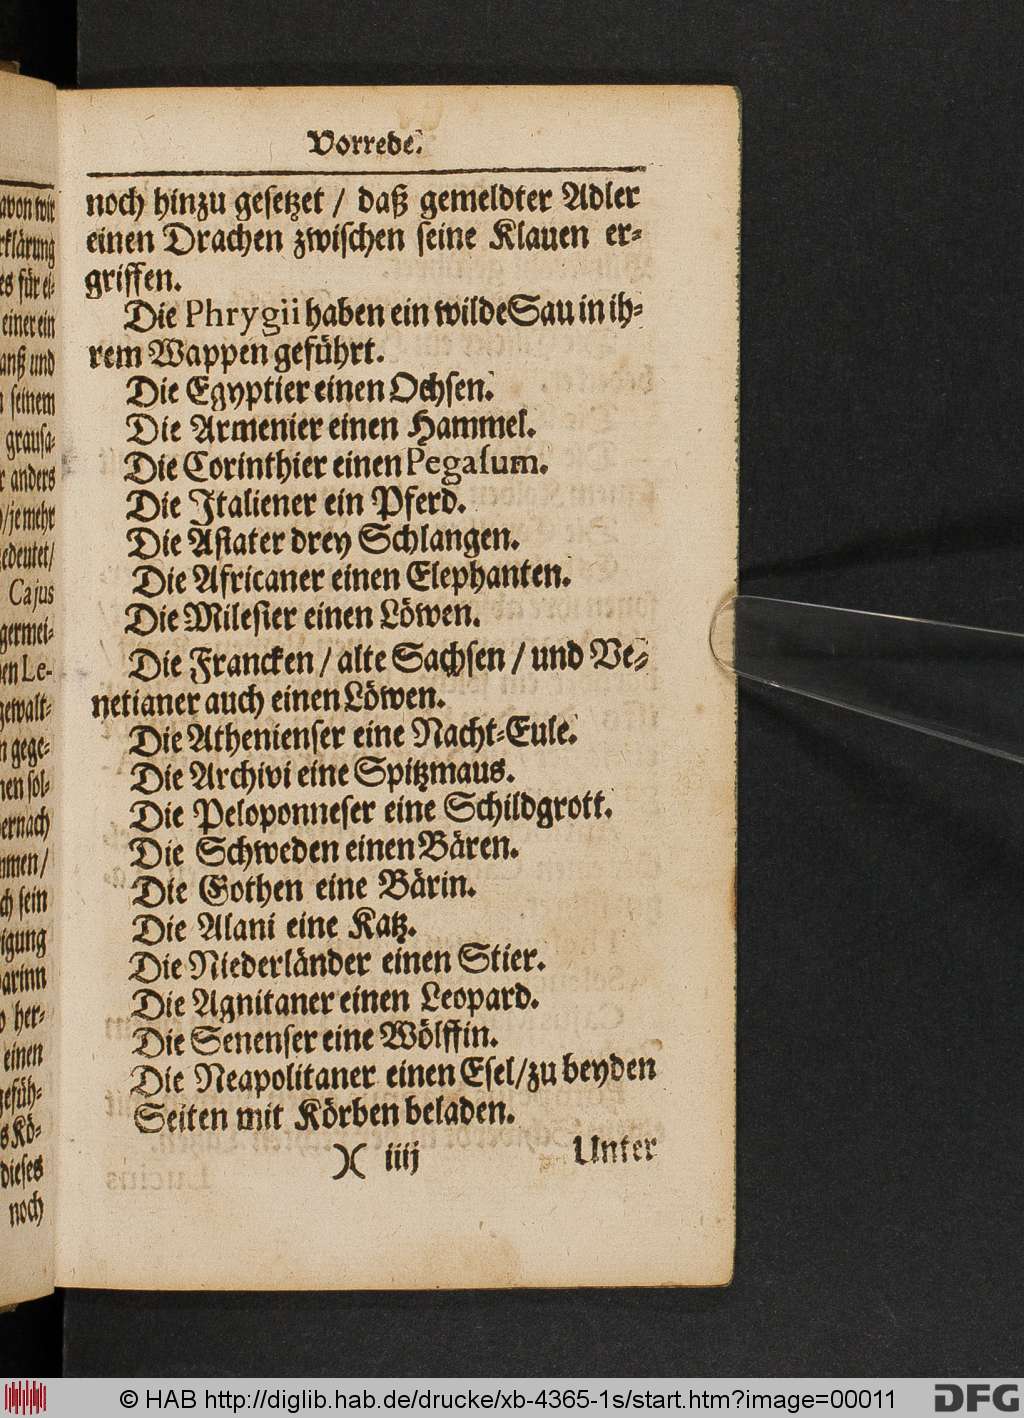 avon wir
rklärung
es für ei-
einer ein
anß und
seinem
grausa-
r anders
/ je mehr
edeutet/
Cajus
germei-
en Le-
gewalt-
n gege-
nen sol-
ernach
mmen/
ch sein
igung
arinn
her-
einen
gefüh-
s Kö-
dieses
noch
Vorrede.
noch hinzu gesetzet / daß gemeldter Adler
einen Drachen zwischen seine Klauen er-
griffen.
Die Phrygii haben ein wilde Sau in ih-
rem Wappen geführt.
Die Egyptier einen Ochsen.
Die Armenier einen Hammel.
Die Corinthier einen Pegaſum.
Die Italiener ein Pferd.
Die Asiater drey Schlangen.
Die Africaner einen Elephanten.
Die Milesier einen Löwen.
Die Francken / alte Sachsen / und Ve-
netianer auch einen Löwen.
Die Athenienser eine Nacht-Eule.
Die Archivi eine Spitzmaus.
Die Peloponneser eine Schildgrott.
Die Schweden einen Bären.
Die Gothen eine Bärin.
Die Alani eine Katz.
Die Niederländer einen Stier.
Die Agnitaner einen Leopard.
Die Senenser eine Wölffin.
Die Neapolitaner einen Esel/zu beyden
Seiten mit Körben beladen.
)( iiij
Unter
© HAB http://diglib.hab.de/drucke/xb-4365-1s/start.htm?image=00011
DFG